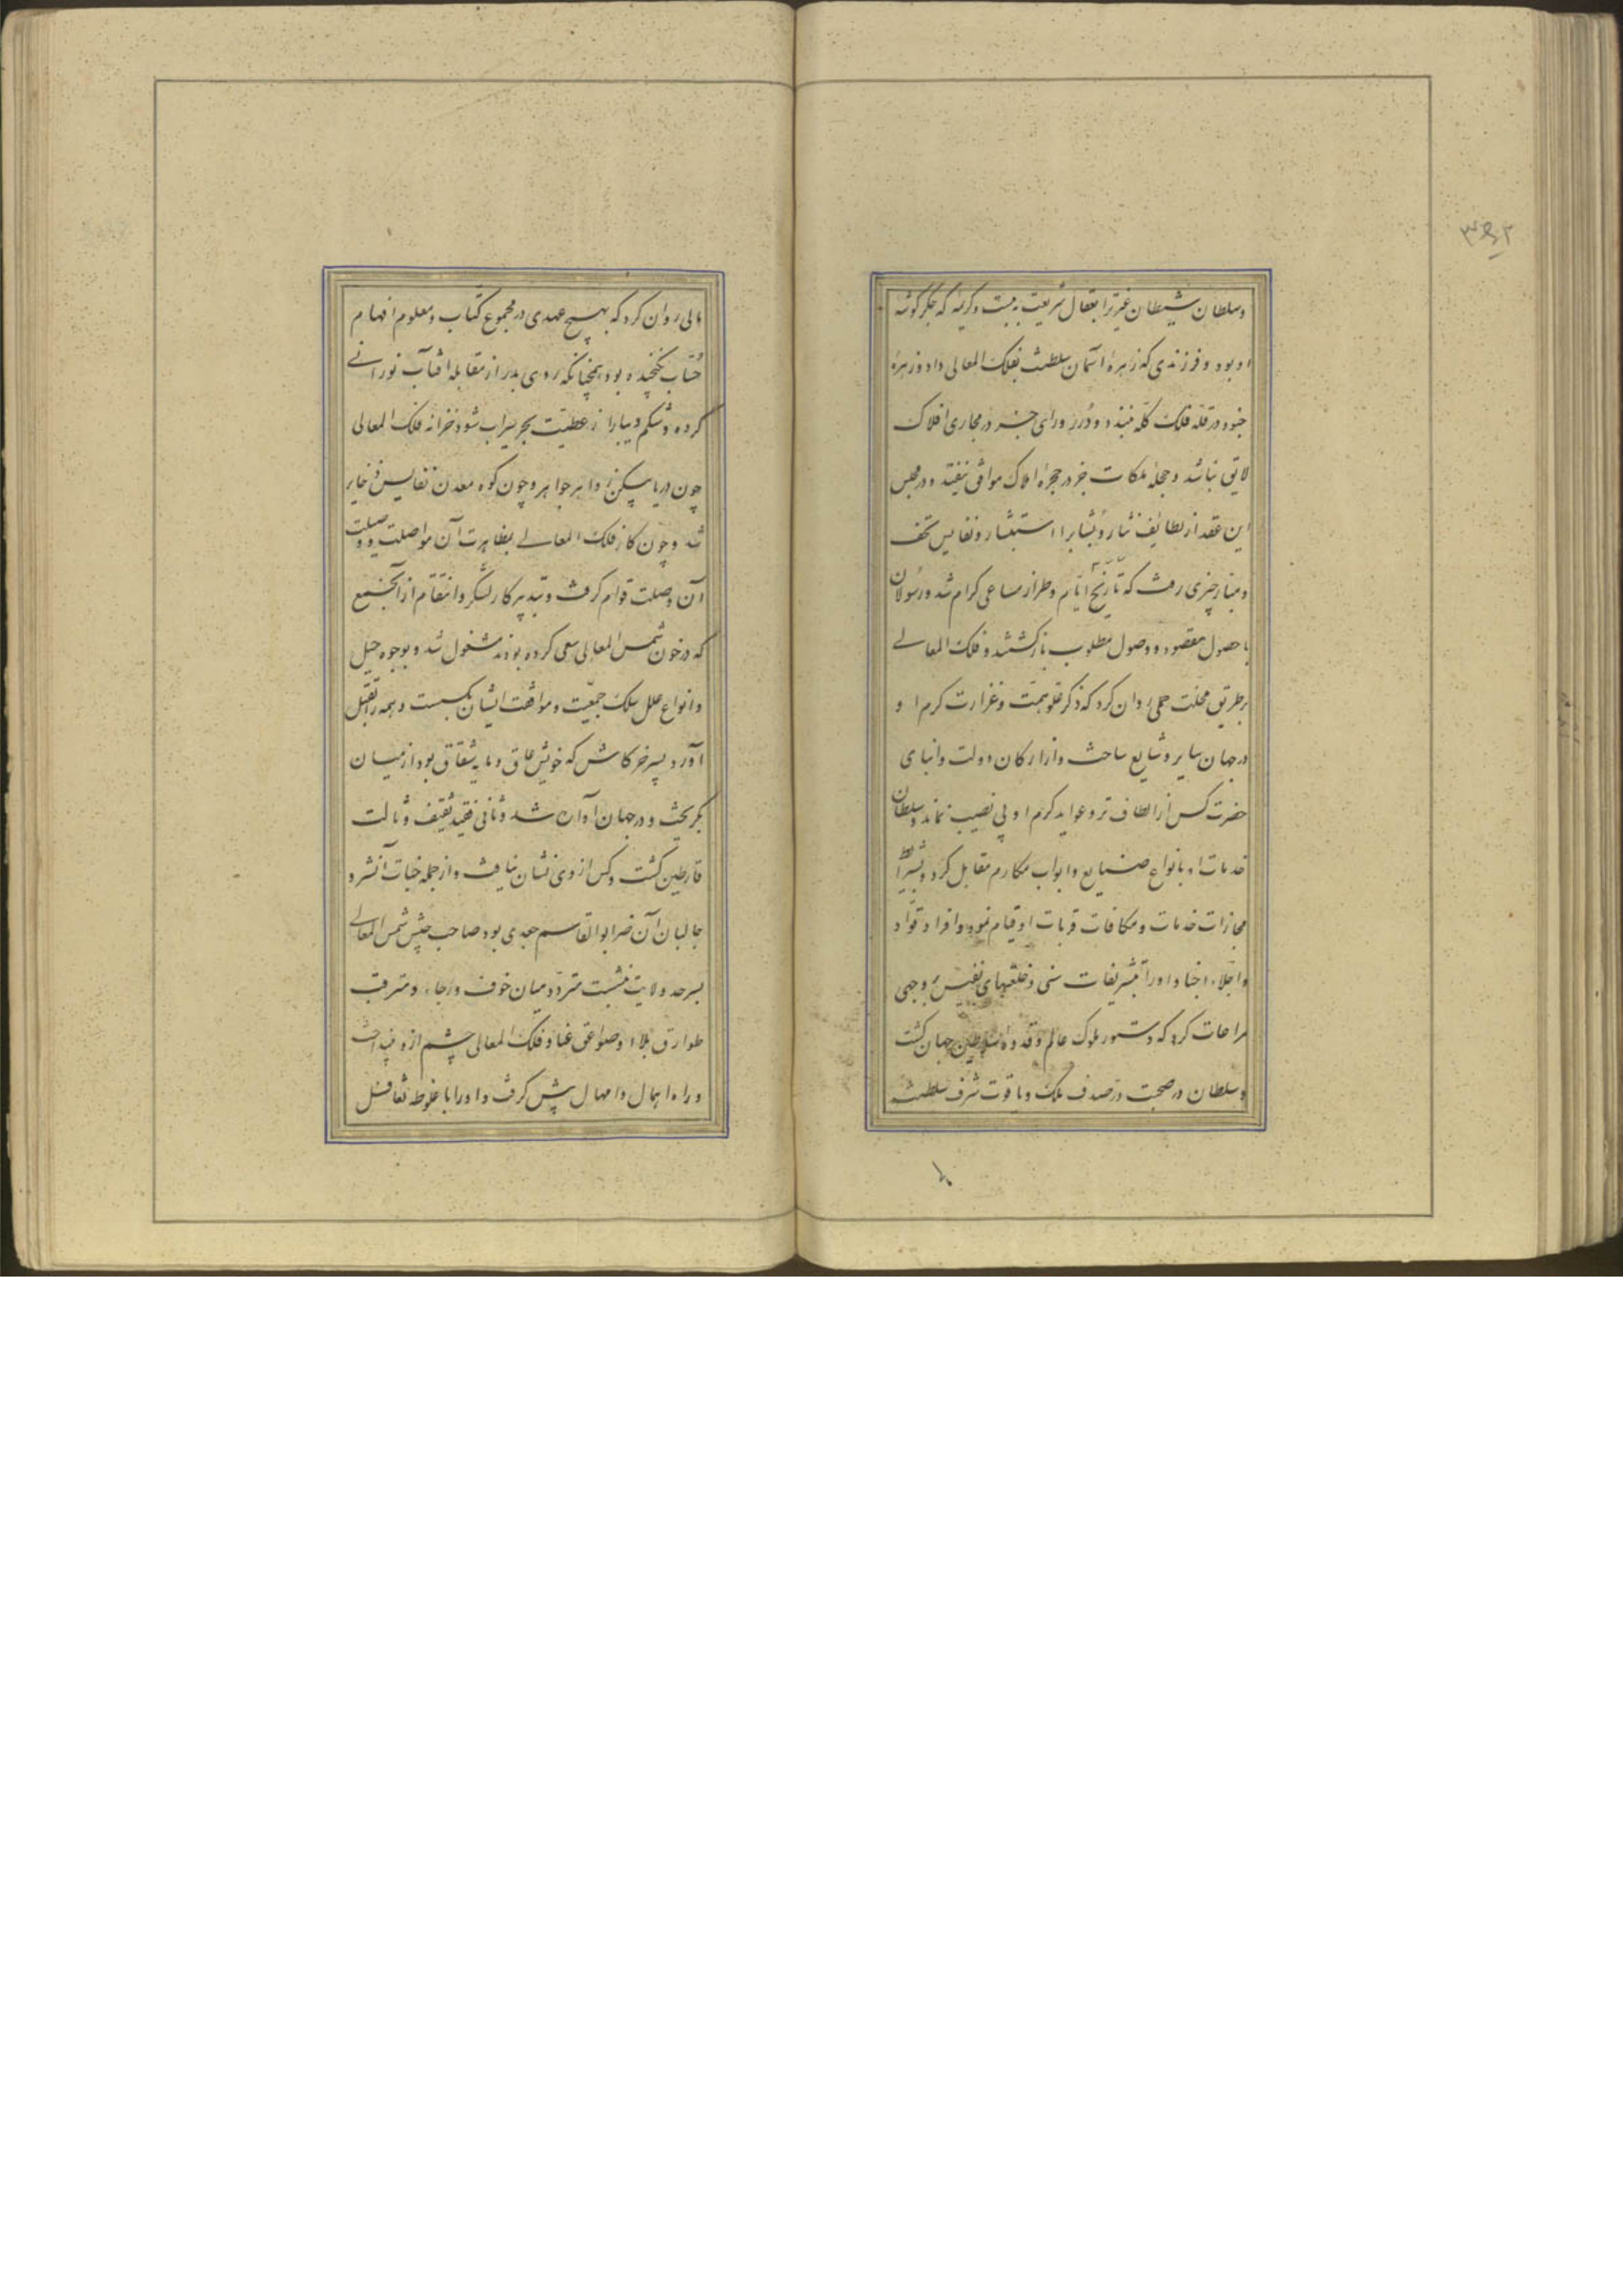 ۳۵۲
وسلطان شیطان غیرترا بعقال شریعت ببست وکریمه که جکرکوشه
او بود وفرزندی که زهره آسمان سلطنت بفلک المعالی داد وزهره
جنود در قله فلک کله نبندد ودرر ورای جنبر در مجاری افلاک
لایق نباشد وحجله ملکات جز در حجره املاک موافق نیفتد ودر مجلس
این عقد از لطایف نثار وبشایر استبشار ونفایس تحف
ومبار چیزی رفت که تاریخ ایام وطراز مساعی کرام شد ورسولان
با حصول مقصود ووصول مطلوب بازکشتند وفلک المعالی
برطریق محلت حملی روان کرد که ذکر علو همت وغزارت کرم او
درجهان سایر وشایع ساخت واز ارکان دولت وانبای
حضرت کس از الطاف تر وعواید کرم او بی نصیب نماند وسلطان
خدمات او بانواع صنایع وابواب مکارم مقابل کرد وبشرایط
مجازات خدمات ومکافات قربات او قیام نمود وافراد قواد
واجلاء اجناد اورا بتشریفات سنی وخلعتهای نفیس بر وجهی
مراعات کرد که دستور ملوک عالم وقدوه سلاطین جهان کشت
وسلطان در صحبت در صدف ملک ویاقوت شرف سلطنت
مالی روان کرد که بهیچ عهدی در مجموع کتاب ومعلوم افهام
حساب نکنجیده بود همچنانکه روی بدر از مقابله آفتاب نورانی
کرده وشکم دیبارا از عطیت بحر سیراب شود خزانه فلک المعالی
چون دریا مسکن زواهر جواهر وچون کوه معدن نفایس ذخایر
شد وچون کار فلک المعالی بمظاهرت آن مواصلت ووصلت
آن وصلت قوام کرفت وتدبیر کار لشکر وانتقام از آن جمع
که در خون شمس المعالی سعی کرده بودند مشغول شد وبوجوه حیل
وانواع علل سلک جمعیت وموافقت ایشان بکسست وهمه را بقتل
آورد وپسر خرکاش که خویش عاق ومایه شقاق بود از میان
بکریخت ودر جهان آواره شد وثانی فقید ثقیف وثالث
قارظین کشت وکس از وی نشان نیافت واز جمله جنات آن شر و
جالبان آن ضر ابوالقاسم جعدی بود صاحب جیش شمس المعالی
بسرحد ولایت نشست متردد میان خوف ورجاء ومترقب
طوارق بلاء وصواعق عنا وفلک المعالی چشم ازو نینداخت
وراه اهمال وامهال پیش کرفت واورا با غلوطه تغافل